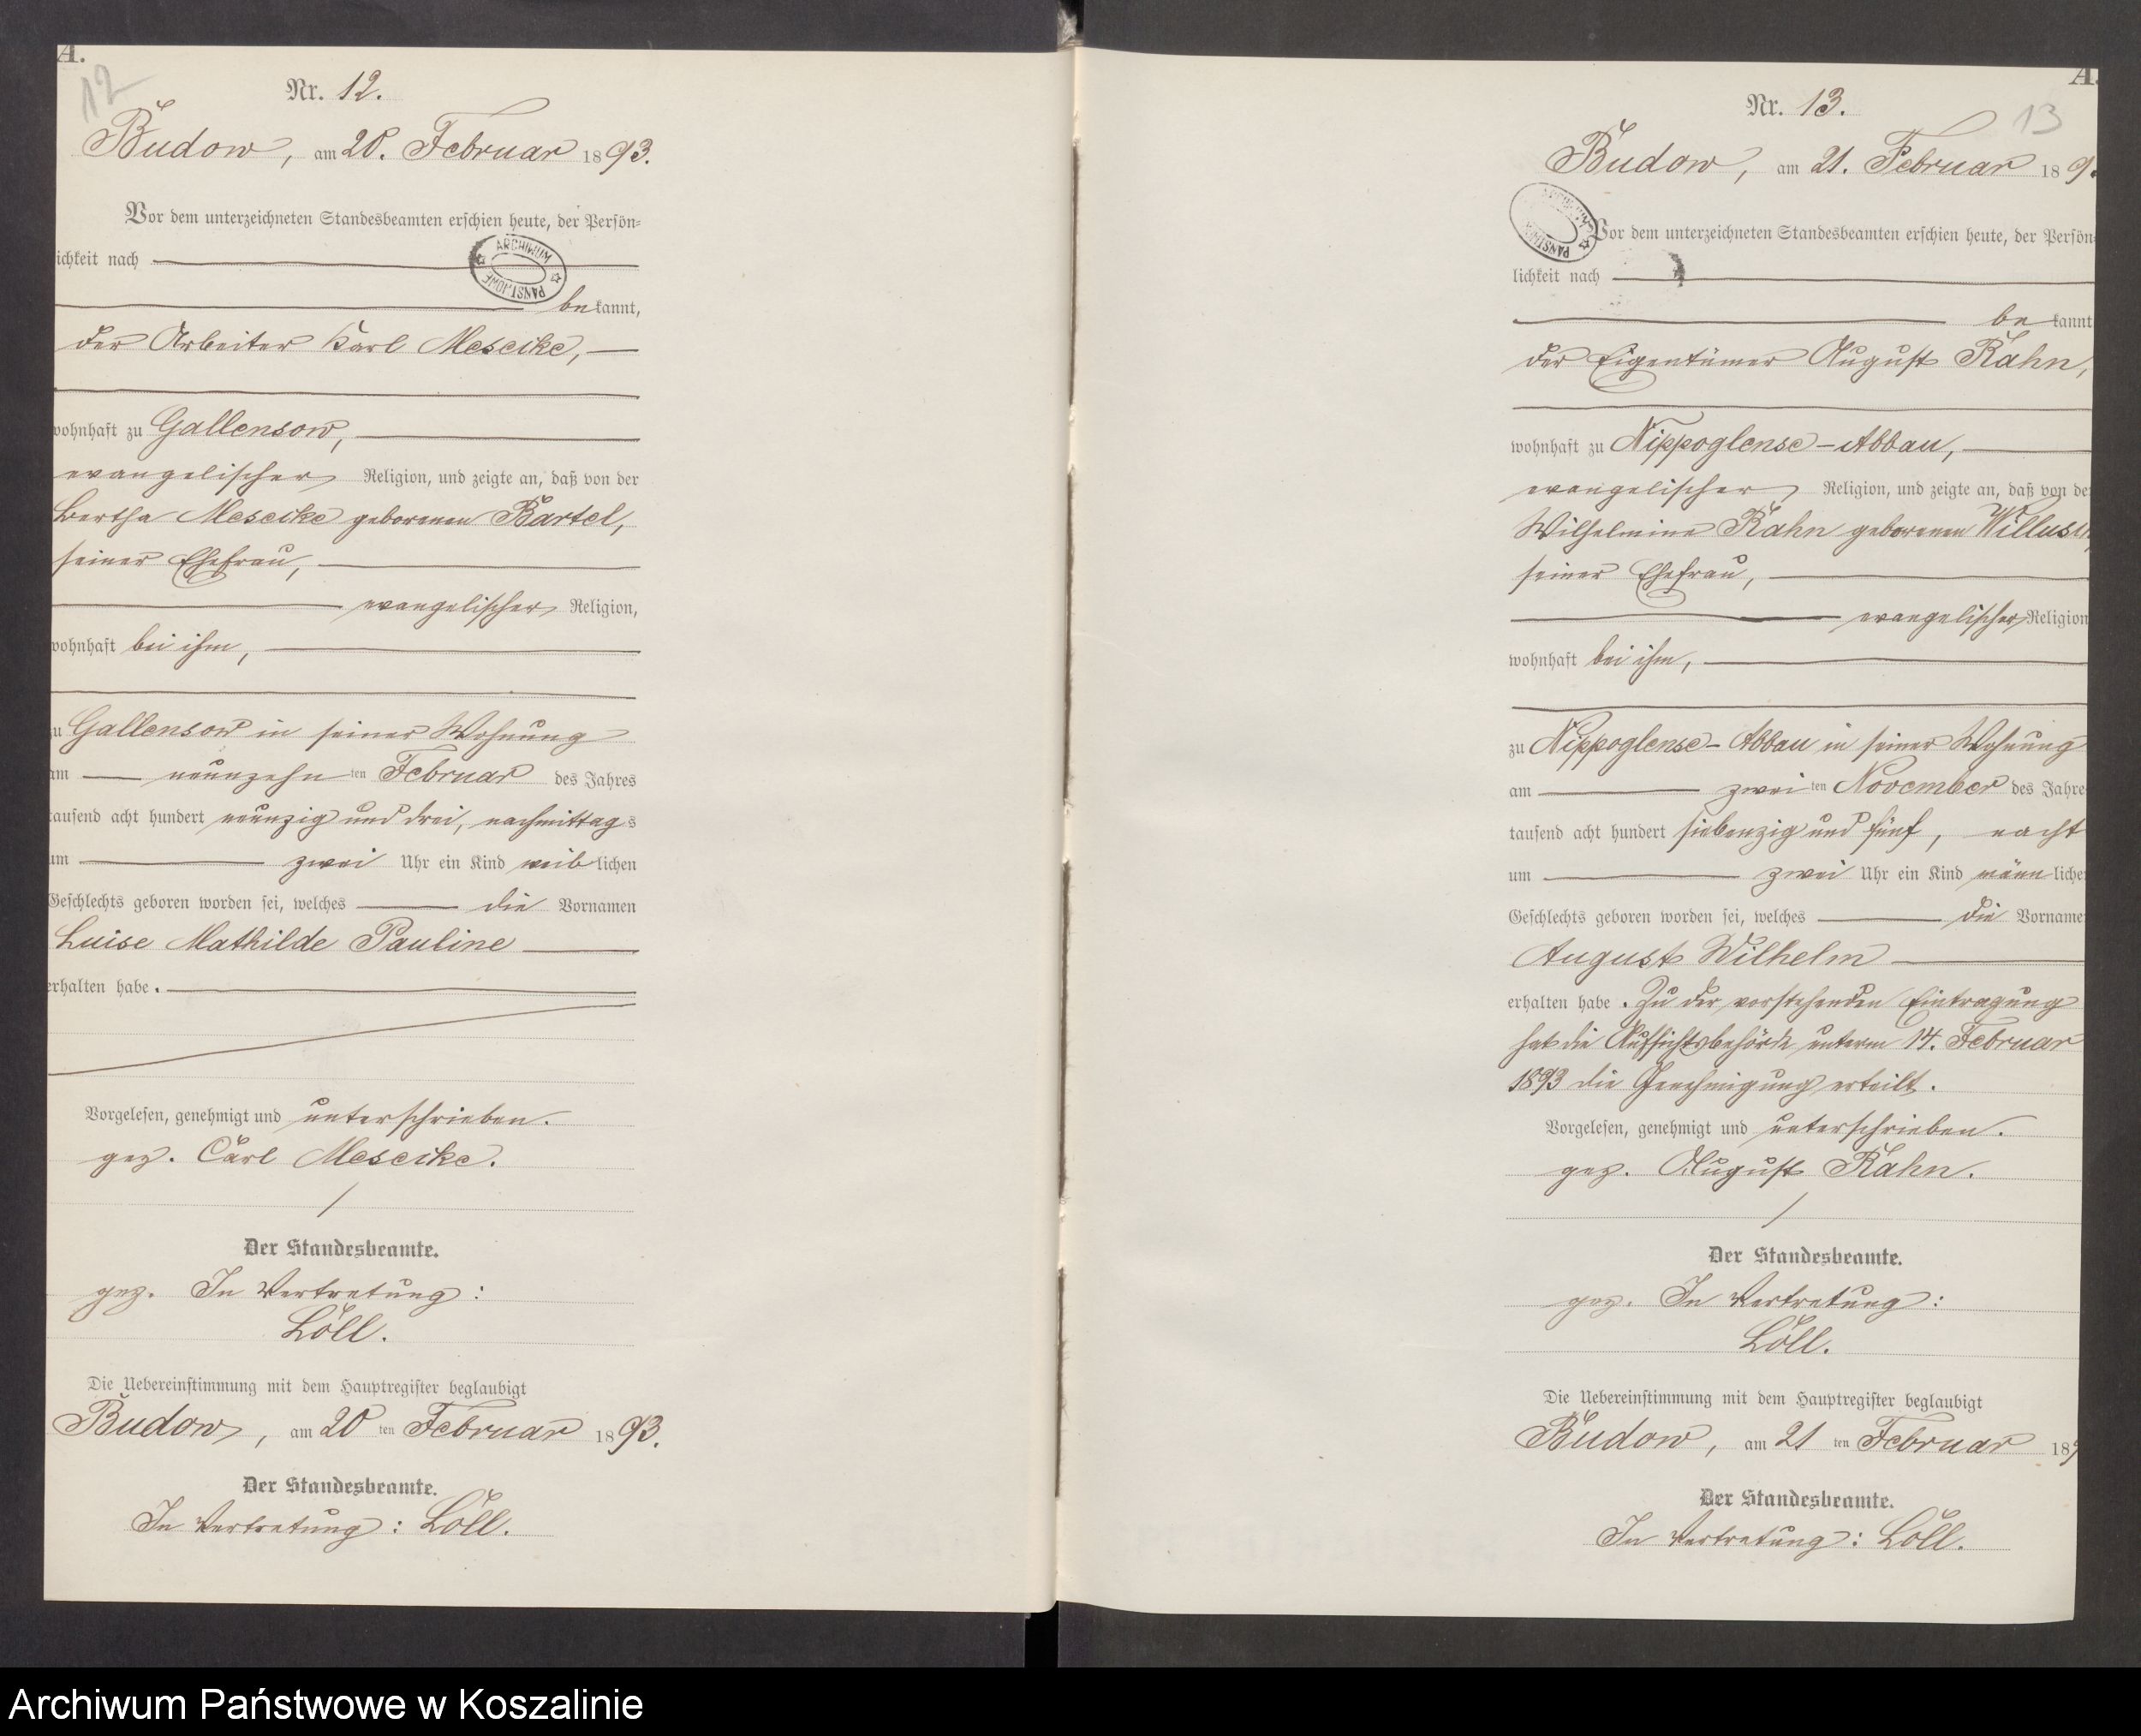 A.
12
Nr. 12.
Budow, am 20. Februar 1893.
Vor dem unterzeichneten Standesbeamten erschien heute, der Persön=
ichkeit nach
ARCHIWUM PAŃSTWOWE
bekannt,
der Arbeiter Karl Meseike,
wohnhaft zu Gallensow,
evangelischer Religion, und zeigte an, daß von der
Bertha Meseike geborenen Bartel,
seiner Ehefrau,
evangelischer Religion,
wohnhaft bei ihm,
zu Gallensow in seiner Wohnung
am neunzehnten Februar des Jahres
tausend acht hundert neunzig und drei, nachmittags
um zwei Uhr ein Kind weiblichen
Geschlechts geboren worden sei, welches die Vornamen
Luise Mathilde Pauline
erhalten habe.
Vorgelesen, genehmigt und unterschrieben.
gez. Carl Meseike.
Der Standesbeamte.
gez. In Vertretung:
Löll.
Die Uebereinstimmung mit dem Hauptregister beglaubigt
Budow, am 20ten Februar 1893.
Der Standesbeamte.
In Vertretung: Löll.
A.
13
Nr. 13.
Budow, am 21. Februar 189
Vor dem unterzeichneten Standesbeamten erschien heute, der Persön=
lichkeit nach
bekannt
der Eigentümer August Kahn,
wohnhaft zu Nippoglense-Abbau,
evangelischer Religion, und zeigte an, daß von de
Wilhelmine Kahn geborenen
seiner Ehefrau,
evangelischer Religion
wohnhaft bei ihm,
zu Nippoglense-Abbau in seiner Wohnung
am zweiten November des Jahre
tausend acht hundert siebenzig und fünf, nacht
um zwei Uhr ein Kind männliche
Geschlechts geboren worden sei, welches die Vorname
August Wilhelm
erhalten habe. Zu der vorstehenden Eintragung
hat die Aufsichtsbehörde unterm 14. Februar
1893 die Genehmigung erteilt.
Vorgelesen, genehmigt und unterschrieben.
gez. August Kahn.
Der Standesbeamte.
gez. In Vertretung:
Löll.
Die Uebereinstimmung mit dem Hauptregister beglaubigt
Budow, am 21ten Februar 189
Der Standesbeamte.
In Vertretung: Löll.
Archiwum Państwowe w Koszalinie